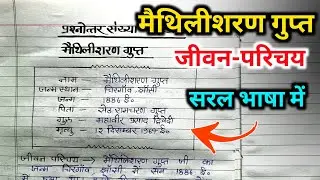 प्रश्नोत्तर संख्या
मैथिलीशरण गुप्त
नाम मैथिलीशरण गुप्त
जन्मस्थान चिरगाँव, झाँसी
जन्म 1886 ई०
पिता सेठ रामचरण गुप्त
गुरु महावीर प्रसाद द्विवेदी
मृत्यु 12 दिसम्बर
जीवन परिचय → मैथिलीशरण गुप्त जी का
जन्म चिरगाँव झाँसी में सन् 1886 ई०
मैथिलीशरण गुप्त
जीवन-परिचय
सरल भाषा में